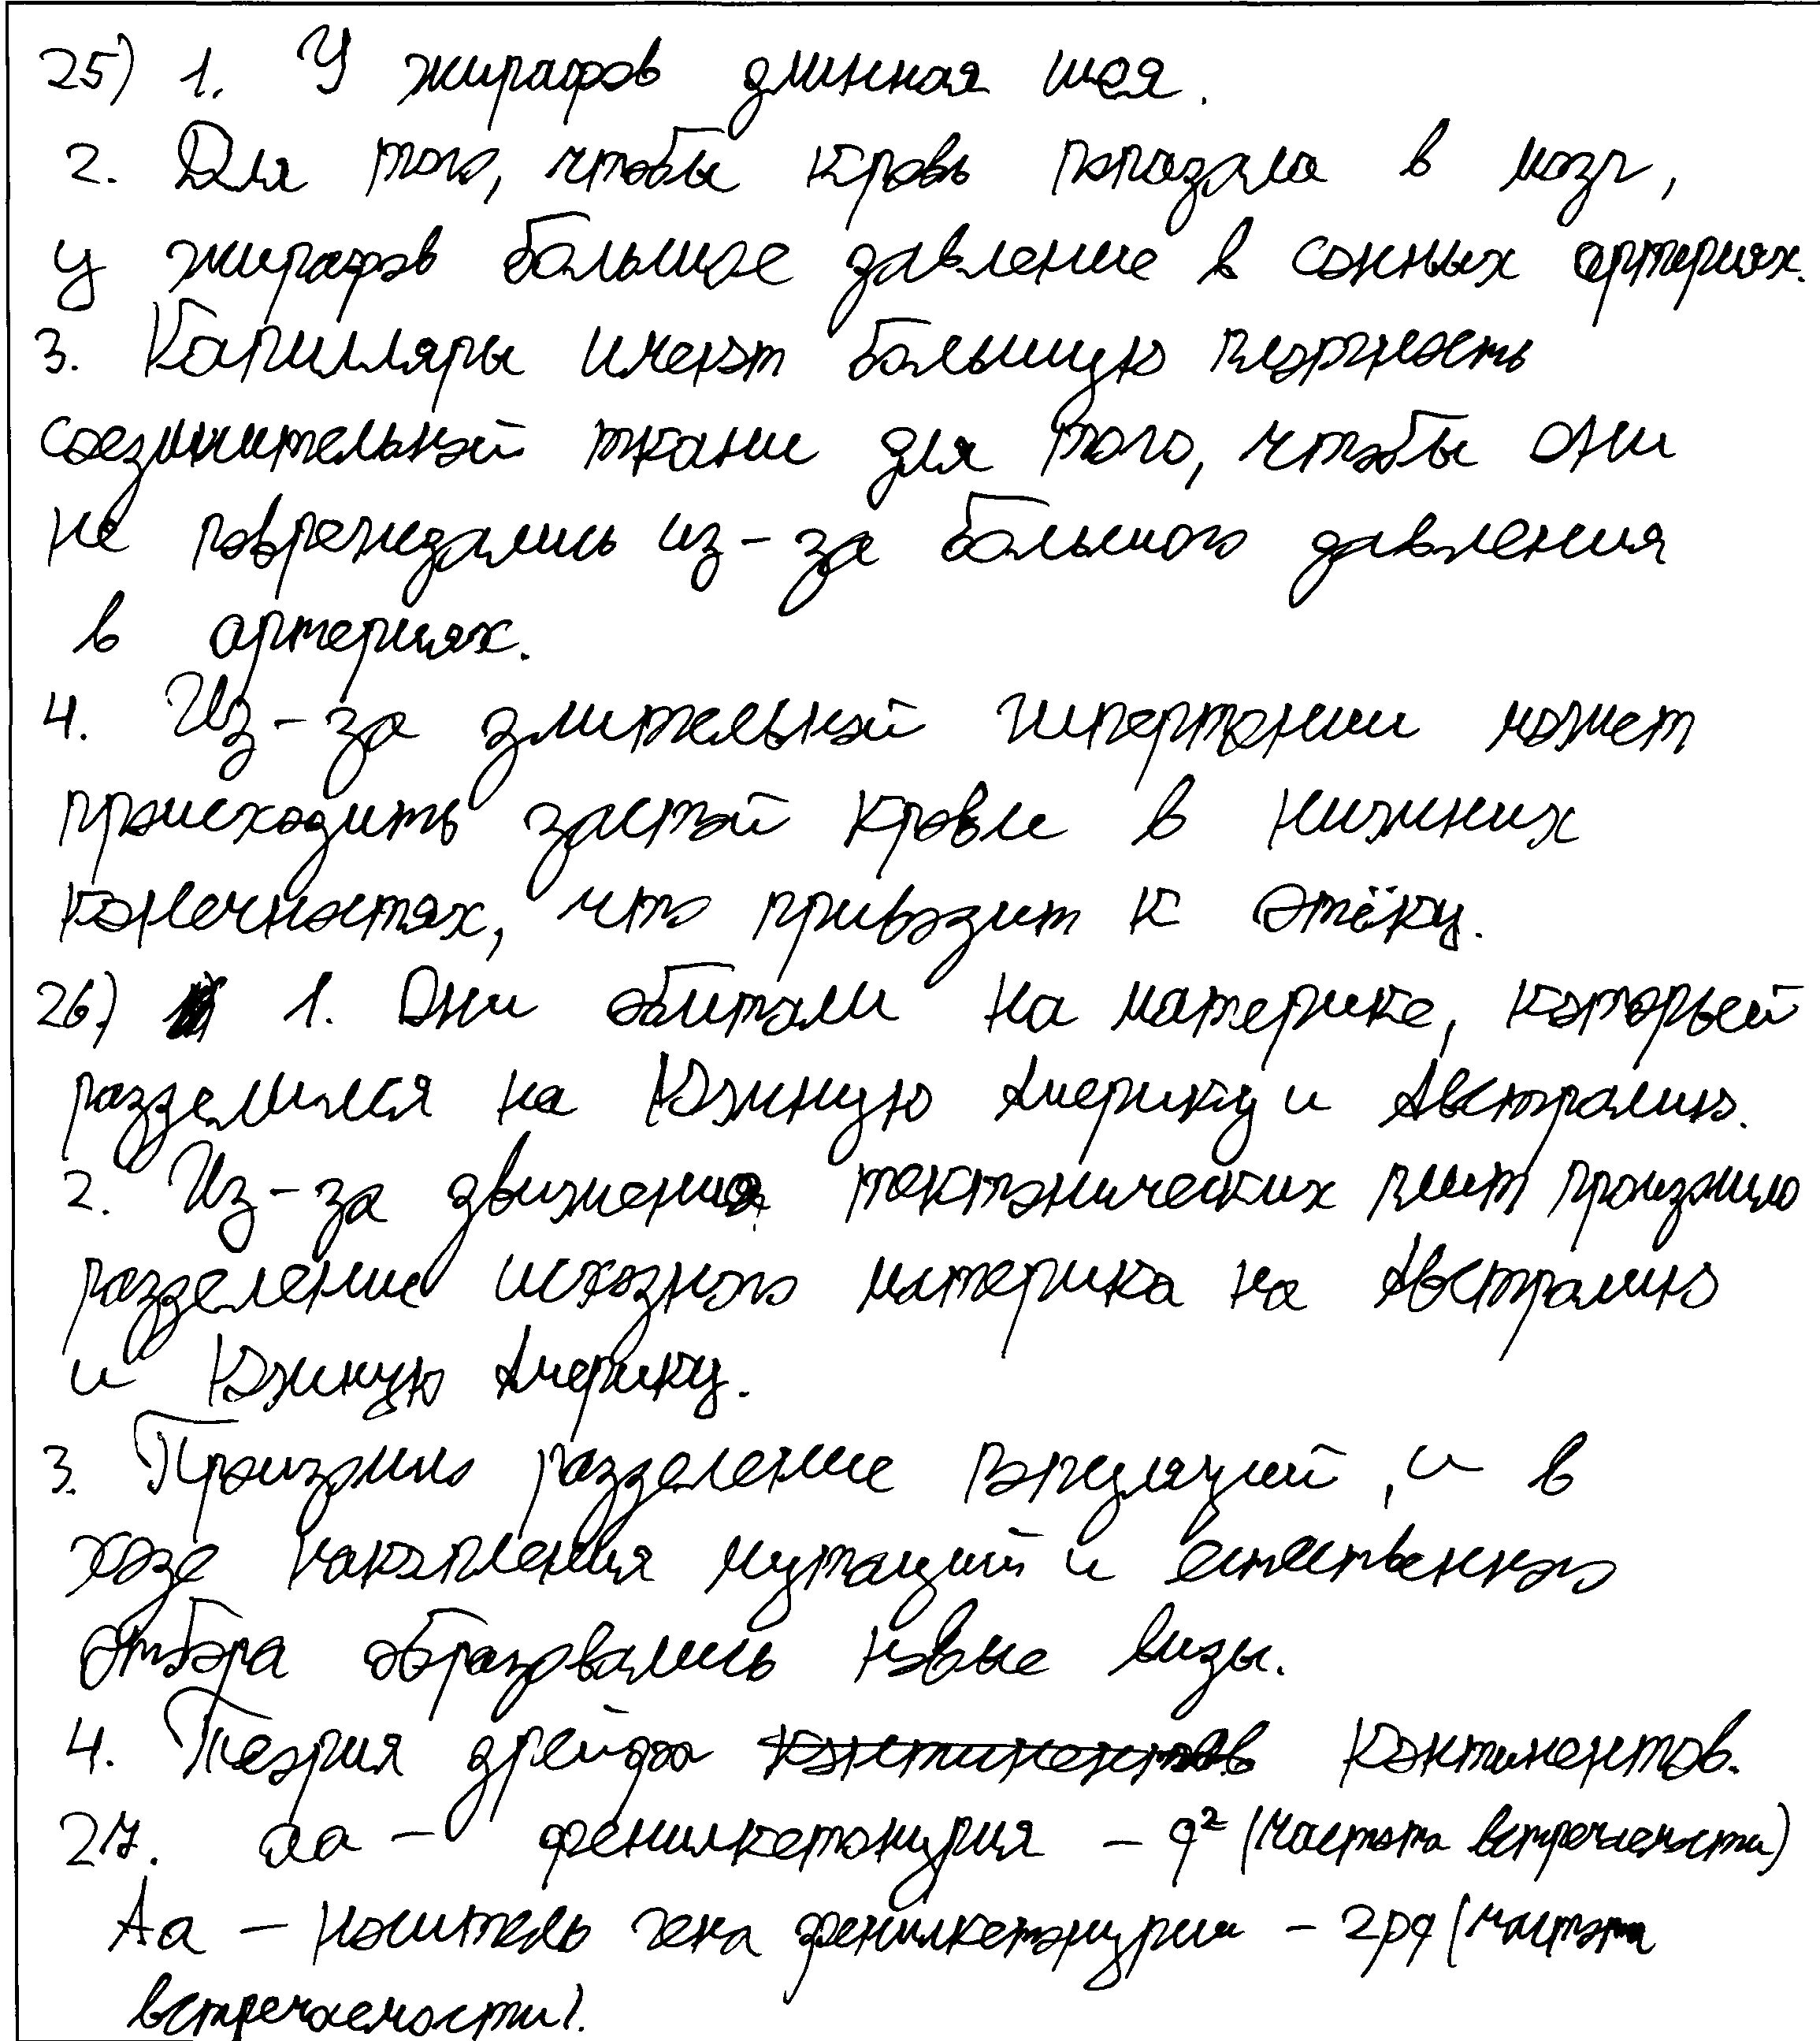 25) 1. У жирафов длинная шея.
2. Для того, чтобы кровь попадала в мозг,
у жирафов большое давление в сонных артериях.
3. Капилляры имеют большую плотность
соединительной ткани для того, чтобы они
не повреждались из-за большого давления
в артериях.
4. Из-за длительной гипертонии может
происходить застой крови в нижних
конечностях, что приводит к отёку.
26) 1. Они обитали на материке, который
разделился на Южную Америку и Австралию.
2. Из-за движения тектонических плит произошло
разделение исходного материка на Австралию
и Южную Америку.
3. Произошло разделение популяций, и в
ходе накопления мутаций и естественного
отбора образовались новые виды.
4. Теория дрейфа континентов континентов.
27. аа – фенилкетонурия – q² (частота встречаемости)
Аа – носитель гена фенилкетонурии – 2pq (частота
встречаемости).